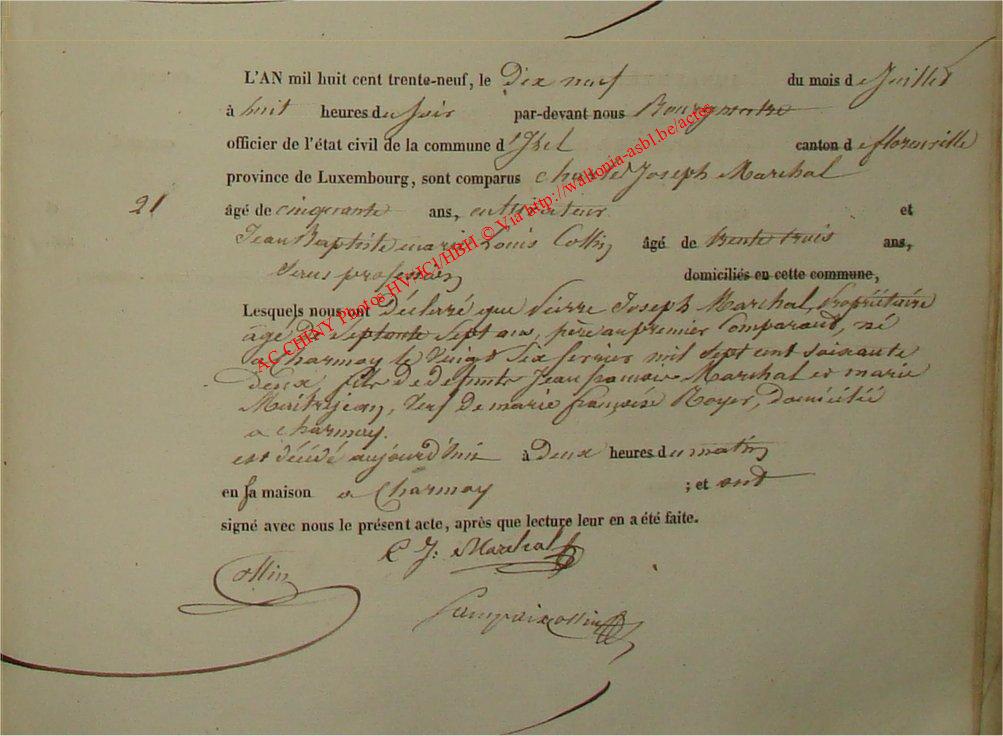 L'AN mil huit cent trente-neuf, le Dix neuf du mois de Juillet
à huit heures du soir par-devant nous Bourgmestre
officier de l'état civil de la commune d'Izel canton de florenville
province de Luxembourg, sont comparus Charles Joseph Marchal
21 âgé de cinquante ans, cultivateur et
Jean Baptiste marie Louis Collin âgé de trente trois ans,
sans profession domiciliés en cette commune,
Lesquels nous ont Déclaré que Pierre Joseph Marchal, propriétaire
âgé de Septante Sept ans, père au premier Comparant, né
a Charmoy le Vingt Six fevrier mil sept cent soixante
deux fils de defunts Jean francois Marchal et marie
Maitrejean, Veuf de marie françoise Royer, domicilié
a Charmoy.
est décédé aujourd'hui à deux heures du matin
en sa maison a Charmoy ; et ont
signé avec nous le présent acte, après que lecture leur en a été faite.
C J: Marchal
Collin
AC CHINY Photos HV-JCl/HBH © Via http://wallonia-asbl.be/actes